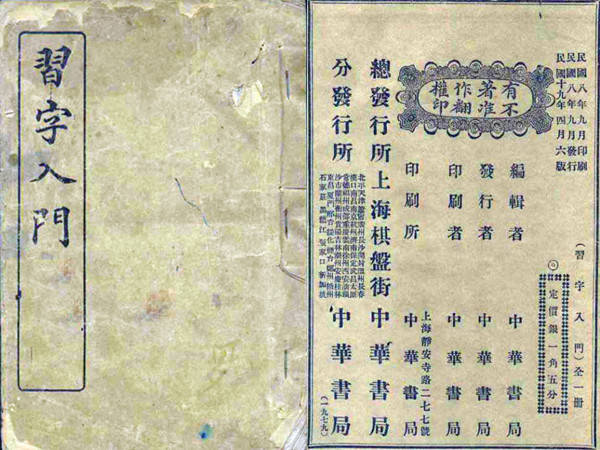 習字入門
民國八年九月印刷
民國八年九月發行
民國十九年四月六版
(習字入門)全一冊
定價銀一角五分
不准翻印
有著作權
編輯者 中華書局
發行者 中華書局
印刷者 中華書局
印刷所 上海靜安寺路二七七號 中華書局
總發行所 上海棋盤街 中華書局
分發行所 中華書局
(一九七九)